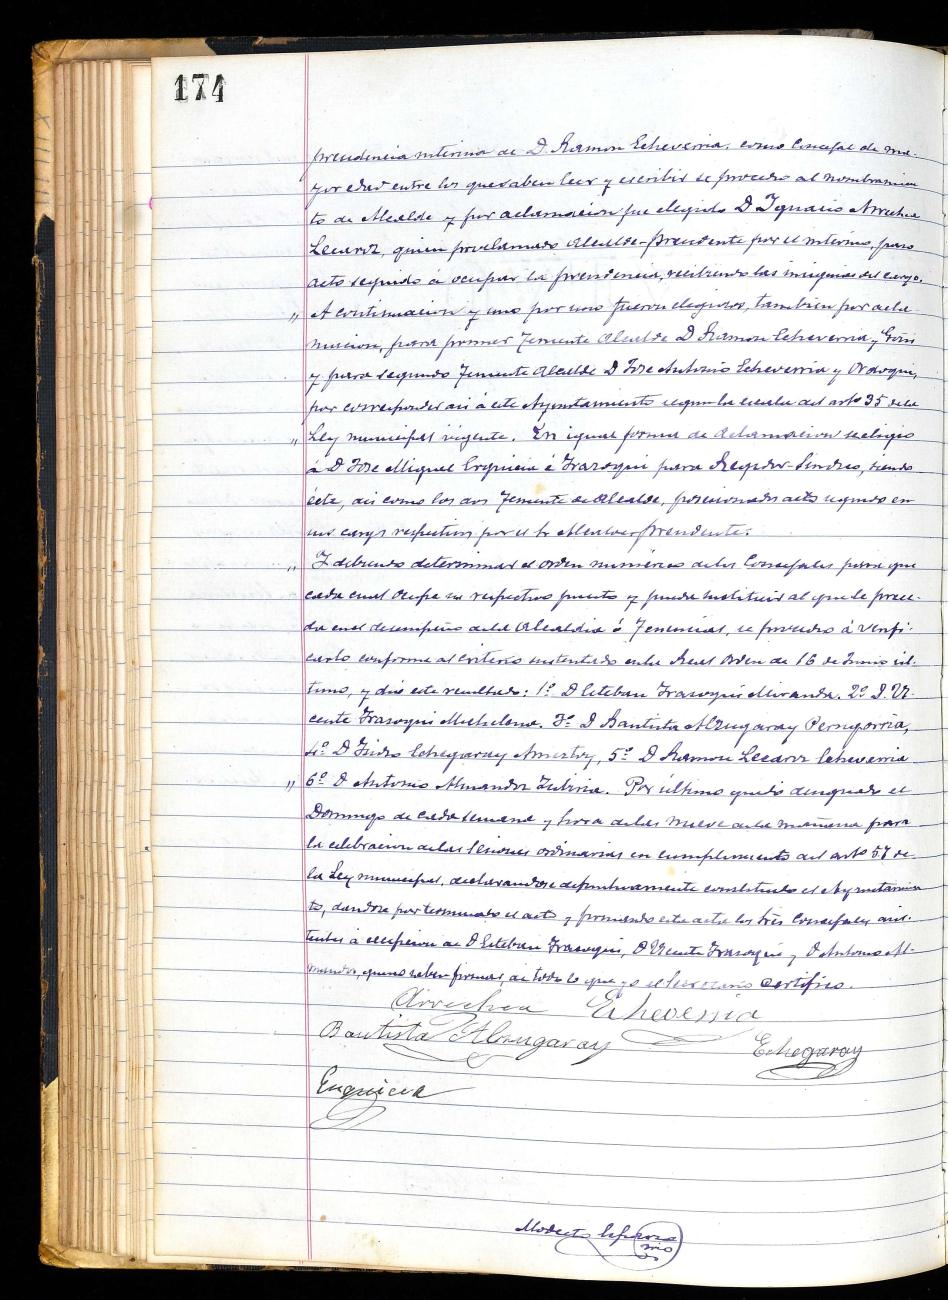 174
presidencia interina de D. Ramon Echeverria, como Concejal de ma-
yor edad entre los que saben leer y escribir se procedio al nombramien
to de Alcalde y por aclamacion fue elegido D Ignacio Arrechea
Lecaroz, quien proclamado Alcalde-presidente por el interino, paso
acto seguido á ocupar la presidencia, recibiendo las insignias del cargo.
" A continuacion y uno por uno fueron elegidos, tambien por acla-
macion, para primer Teniente Alcalde D Ramon Echeverria y Goñi
y para segundo Teniente Alcalde D Jose Antonio Echeverria y Ordoqui,
por corresponder asi á este Ayuntamiento segun la escala del artº 35 de la
" Ley municipal vigente. En igual forma de aclamacion se eligio
á D Jose Miguel Erquicia é Irazoqui para Regidor-Sindico, siendo
éste, asi como los dos Teniente de Alcalde, posesionados acto seguido en
sus cargos respectivos por el Sr Alcalde presidente.
" Y debiendo determinar el orden numérico de los Concejales para que
cada cual ocupe su respectivo puesto y pueda sustituir al que le prece-
da en el desempeño de la Alcaldia ó Tenencias, se procedio á verifi-
carlo conforme al criterio sustentado en la Real Orden de 16 de Junio úl-
timo, y dio este resultado: 1º D Esteban Irazoqui Miranda. 2º D. Vi-
cente Irazoqui Michelena. 3º D Bautista Alzugaray Perugorria,
4º D Isidro Echegaray Ameztoy, 5º D Ramon Lecaroz Echeverria
" 6º D Antonio Almandoz Zubiria. Por último quedó designado el
Domingo de cada semana y hora de las nueve de la mañana para
la celebracion de las sesiones ordinarias en cumplimiento del artº 57 de
la Ley municipal, declarandose definitivamente constituido el Ayuntamien
to, dandose por terminado el acto y firmando este acta los tres Concejales asis-
tentes á excepcion de D Esteban Irazoqui, D Vicente Irazoqui y D Antonio Al-
mandoz, que no saben firmar, de todo lo que yo el Secretario certifico.
Arrechea Echeverria
Bautista Alzugaray Echegaray
Erquicia
Modesto